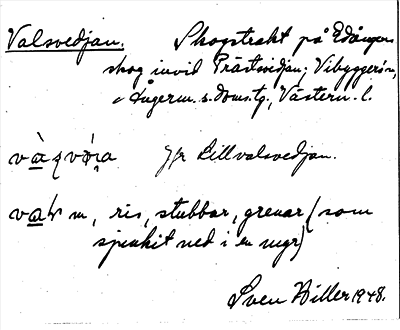 Valsvedjan. Skogstrakt på Edånger
skog invid Prästsvedjan; Vibyggerå sn,
Ångerm. s. doms. tg., Västern. l.
Jfr Lillvalsvedjan.
m, ris, stubbar, grenar (som
sjunkit ned i en myr)
Sven Hiller 1948.